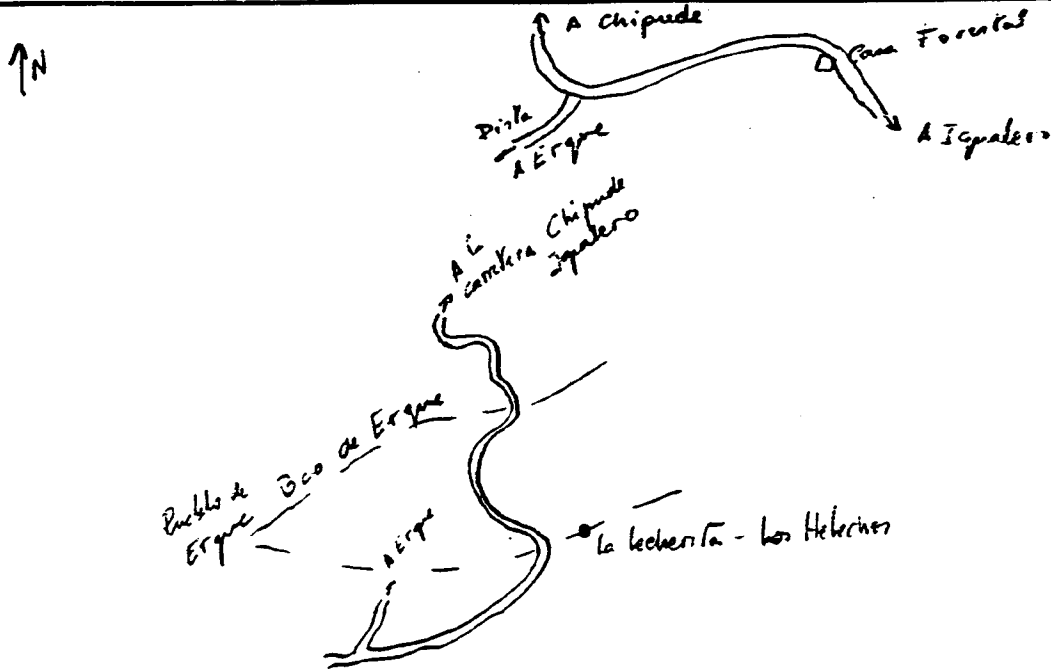 N
A Chipude
Casa Forestal
A Igualero
Pista
A Erque
A la
carretera Chipude
Igualero
Bco de Erque
Pueblo de
Erque
A Erque
La lecherita - Los Helechos